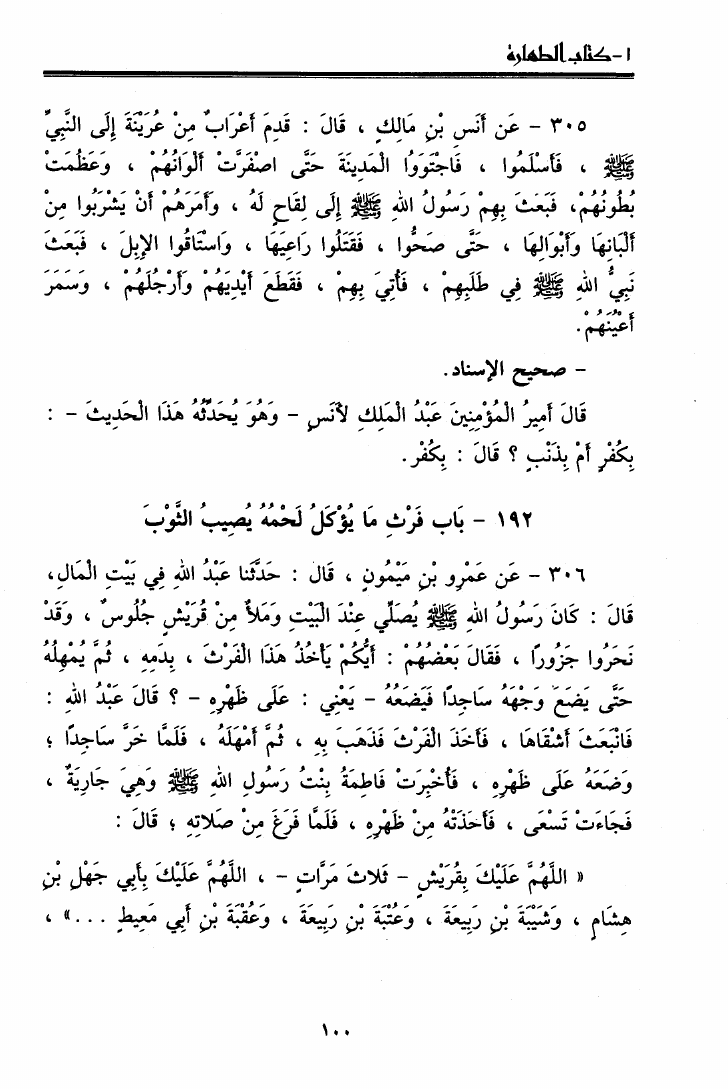 ١- كتاب الطهارة
٣٠٥ - عَن أَنَسِ بْنِ مَالِكٍ ، قَالَ : قَدِمَ أَعْرَابٌ مِنْ عُرَيْنَةَ إِلَى النَّبِيِّ
ﷺ ، فَأَسْلَمُوا ، فَاجْتَوَوُا الْمَدِينَةَ حَتَّى اصْفَرَّتْ أَلْوَانُهُمْ ، وَعَظُمَتْ
بُطُونُهُمْ، فَبَعَثَ بِهِمْ رَسُولُ اللهِ ﷺ إِلَى لِقَاحٍ لَهُ ، وَأَمَرَهُمْ أَنْ يَشْرَبُوا مِنْ
أَلْبَانِهَا وَأَبْوَالِهَا ، حَتَّى صَحُّوا ، فَقَتَلُوا رَاعِيَهَا ، وَاسْتَاقُوا الإِبِلَ ، فَبَعَثَ
نَبِيُّ اللهِ ﷺ فِي طَلَبِهِمْ ، فَأُتِيَ بِهِمْ ، فَقَطَعَ أَيْدِيَهُمْ وَأَرْجُلَهُمْ ، وَسَمَرَ
أَعْيُنَهُمْ.
- صحيح الإسناد.
قَالَ أَمِيرُ الْمُؤْمِنِينَ عَبْدُ الْمَلِكِ لأَنَسٍ - وَهُوَ يُحَدِّثُهُ هَذَا الْحَدِيثَ - :
بِكُفْرٍ أَمْ بِذَنْبٍ ؟ قَالَ : بِكُفْرٍ.
١٩٢ - بَاب فَرْثِ مَا يُؤْكَلُ لَحْمُهُ يُصِيبُ الثَّوْبَ
٣٠٦ - عَن عَمْرِو بْنِ مَيْمُونٍ ، قَال : حَدَّثَنا عَبْدُ اللهِ فِي بَيْتِ الْمَالِ،
قَالَ : كَانَ رَسُولُ اللهِ ﷺ يُصَلِّي عِنْدَ الْبَيْتِ وَمَلأٌ مِنْ قُرَيْشٍ جُلُوسٌ ، وَقَدْ
نَحَرُوا جَزُورًا ، فَقَالَ بَعْضُهُمْ : أَيُّكُمْ يَأْخُذُ هَذَا الْفَرْثَ ، بِدَمِهِ ، ثُمَّ يُمْهِلُهُ
حَتَّى يَضَعَ وَجْهَهُ سَاجِدًا فَيَضَعُهُ - يَعْنِي : عَلَى ظَهْرِهِ - ؟ قَالَ عَبْدُ اللهِ :
فَانْبَعَثَ أَشْقَاهَا ، فَأَخَذَ الْفَرْثَ فَذَهَبَ بِهِ ، ثُمَّ أَمْهَلَهُ ، فَلَمَّا خَرَّ سَاجِدًا ؛
وَضَعَهُ عَلَى ظَهْرِهِ ، فَأُخْبِرَتْ فَاطِمَةُ بِنْتُ رَسُولِ اللهِ ﷺ وَهِيَ جَارِيَةٌ ،
فَجَاءَتْ تَسْعَى ، فَأَخَذَتْهُ مِنْ ظَهْرِهِ ، فَلَمَّا فَرَغَ مِنْ صَلاتِهِ ؛ قَالَ :
« اللَّهُمَّ عَلَيْكَ بِقُرَيْشٍ - ثَلاثَ مَرَّاتٍ - ، اللَّهُمَّ عَلَيْكَ بِأَبِي جَهْلِ بْنِ
هِشَامٍ ، وَشَيْبَةَ بْنِ رَبِيعَةَ ، وَعُتْبَةَ بْنِ رَبِيعَةَ ، وَعُقْبَةَ بْنِ أَبِي مَعِيطٍ ...» ،
١٠٠